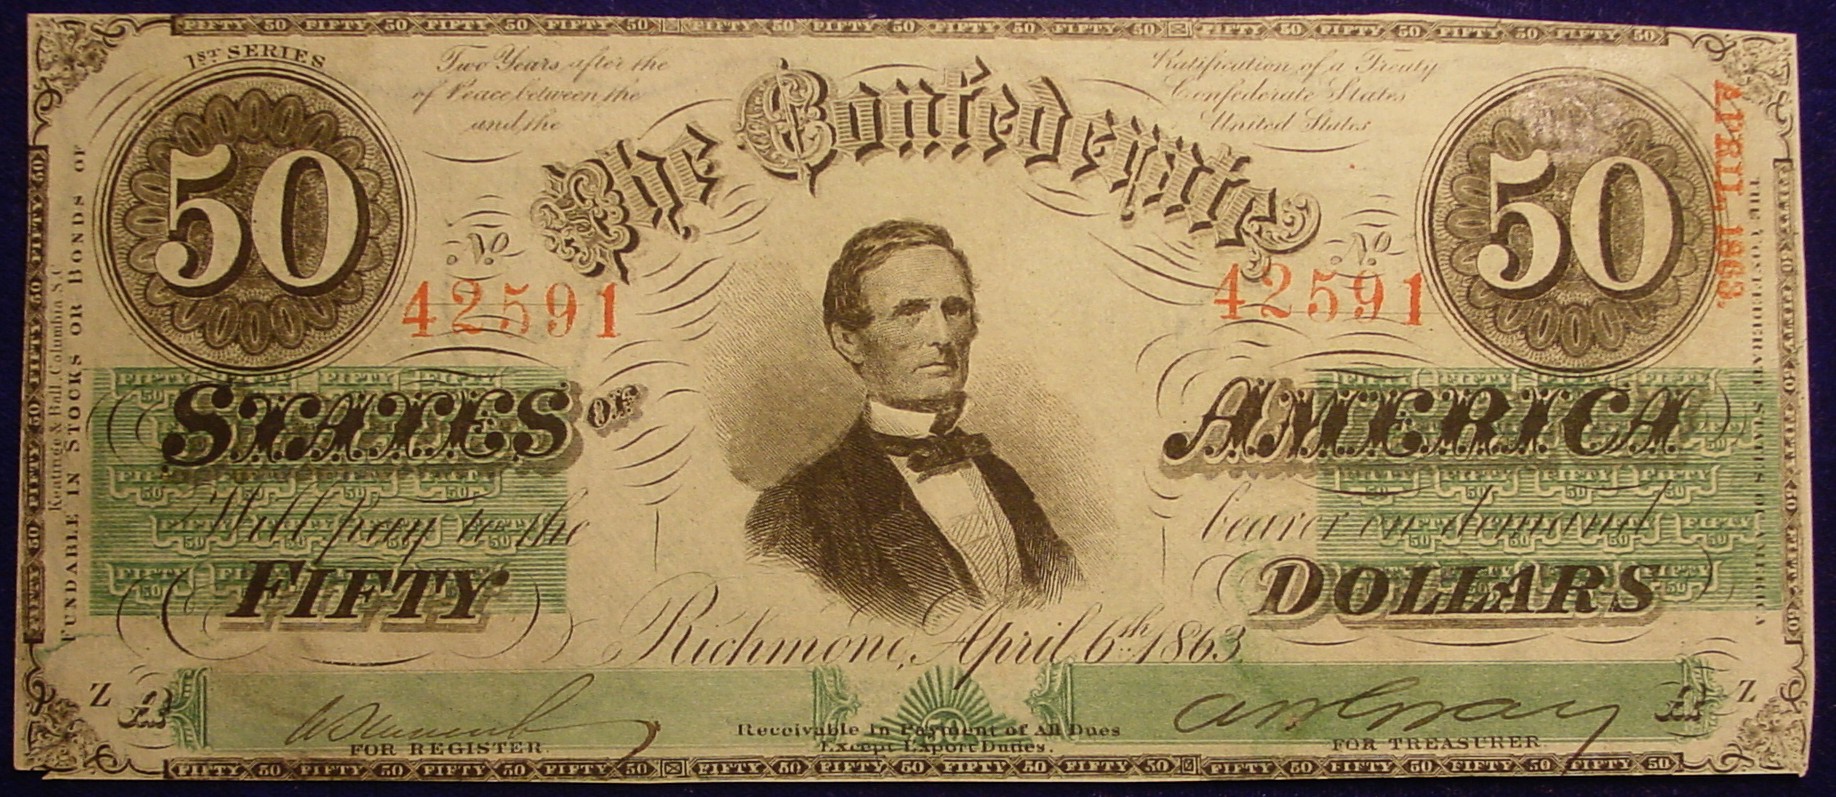 FIFTY 50 FIFTY 50 FIFTY 50 FIFTY 50 FIFTY 50 FIFTY 50 FIFTY 50 FIFTY 50 FIFTY 50 FIFTY 50 FIFTY 50 FIFTY 50
1ST SERIES
Two Years after the Ratification of a Treaty
of Peace between the Confederate States
and the United States
The Confederate
50
50
APRIL, 1863.
No. 42591
No. 42591
STATES OF AMERICA
Will pay to the bearer on demand
FIFTY DOLLARS
Richmond, April 6th 1863
FUNDABLE IN STOCKS OR BONDS OF
THE CONFEDERATE STATES OF AMERICA
Keatinge & Ball, Columbia S.C.
Z
Z
FOR REGISTER.
Receivable In Payment of All Dues
Except Export Duties.
FOR TREASURER.
FIFTY 50 FIFTY 50 FIFTY 50 FIFTY 50 FIFTY 50 FIFTY 50 FIFTY 50 FIFTY 50 FIFTY 50 FIFTY 50 FIFTY 50 FIFTY 50